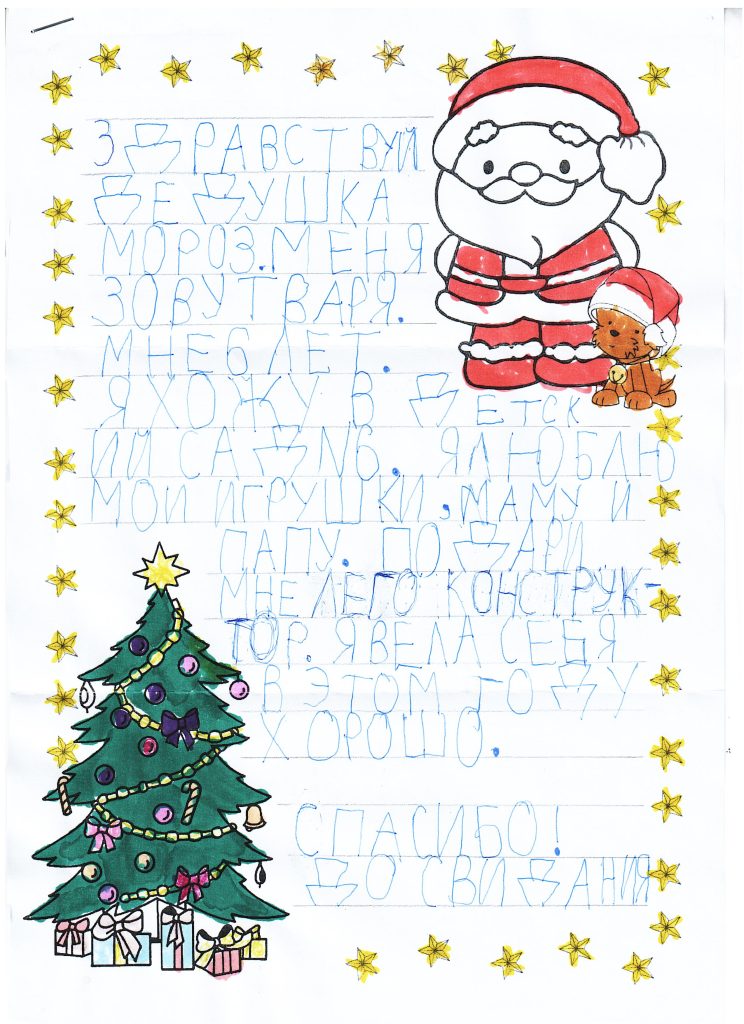 ЗДРАВСТВУЙ
ДЕДУШКА
МОРОЗ.МЕНЯ
ЗОВУТ ВАРЯ.
МНЕ 6 ЛЕТ.
Я ХОЖУ В ДЕТСК
ИЙ САД №6. Я ЛЮБЛЮ
МОИ ИГРУШКИ, МАМУ И
ПАПУ. ПОДАРИ
МНЕ ЛЕГО КОНСТРУК-
ТОР. Я ВЕЛА СЕБЯ
В ЭТОМ ГОДУ
ХОРОШО.
СПАСИБО!
ДО СВИДАНИЯ